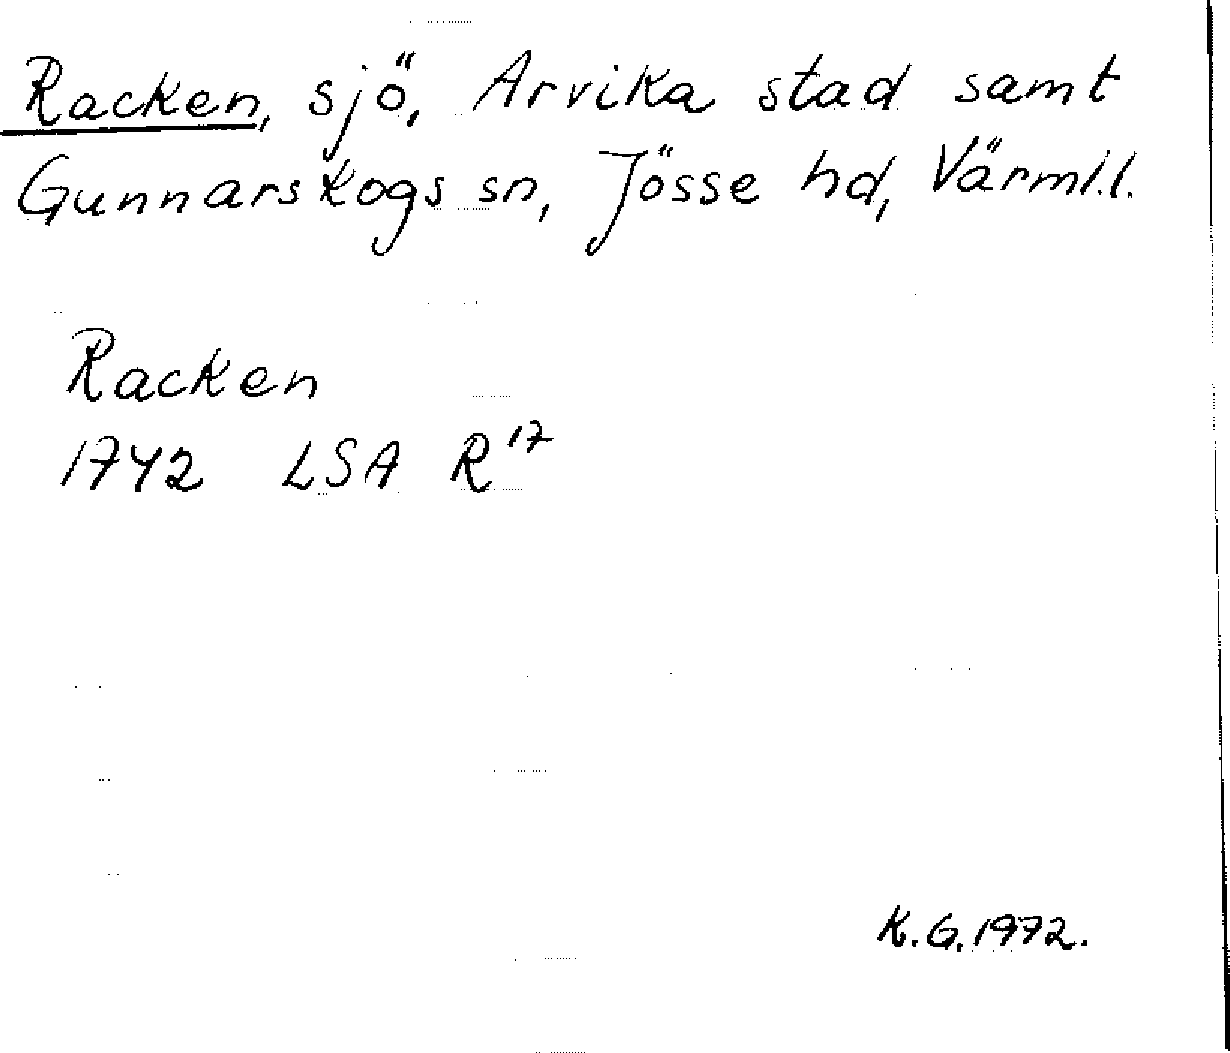 Racken, sjö, Arvika stad samt
Gunnarskogs sn, Jösse hd, Värml.l.
Racken
1742 LSA R 17
K.G.1972.